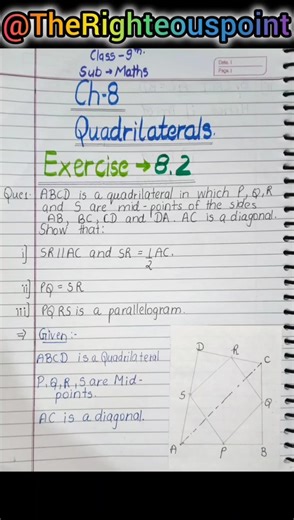 @TheRighteouspoint
Class - 9th.
Sub → Maths
Date:
Page:
Ch-8
Quadrilaterals.
Exercise → 8.2
Ques: ABCD is a quadrilateral in which P, Q, R
and S are mid-points of the sides
AB, BC, CD and DA. AC is a diagonal.
Show that:
i] SR || AC and SR = 1/2 AC.
ii] PQ = SR
iii] PQRS is a parallelogram.
⇒ Given:-
ABCD is a Quadrilateral
P, Q, R, S are Mid-
points.
AC is a diagonal.
D R C
S Q
A P B